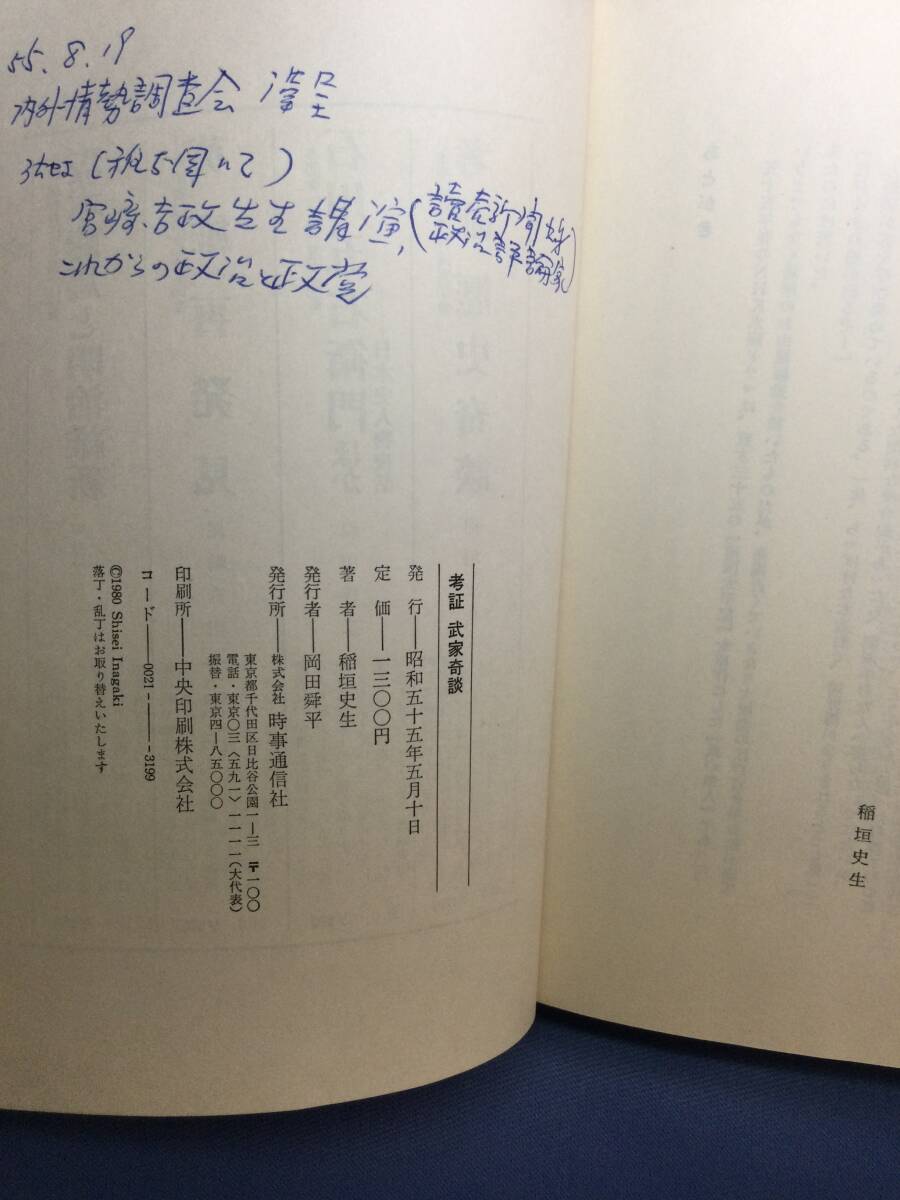 55.8.19
内外情勢調査会
宮崎吉政先生講演、(読売新聞
政治評論家)
これからの政治と政党
考証 武家奇談
発行――昭和五十五年五月十日
定価――一三〇〇円
著者――稲垣史生
発行者――岡田舜平
発行所――株式会社 時事通信社
東京都千代田区日比谷公園一―三 〒一〇〇
電話・東京〇三〈五九一〉一一一一(大代表)
振替・東京四―八五〇〇〇
印刷所――中央印刷株式会社
コード――0021-――-3199
©1980 Shisei Inagaki
落丁・乱丁はお取り替えいたします
稲垣史生